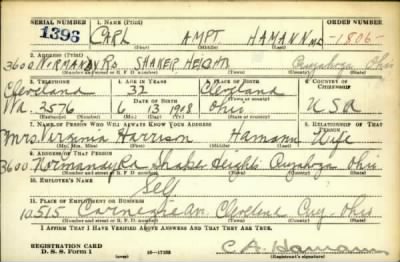 SERIAL NUMBER 1. NAME (Print) ORDER NUMBER
1396 CARL AMPT HAMANN MD -1806-
(First) (Middle) (Last)
2. ADDRESS (Print)
3600 NORMANDY RD SHAKER HEIGHTS Cuyahoga Ohio
(Number and street or R. F. D. number) (Town) (County) (State)
3. TELEPHONE 4. AGE IN YEARS 5. PLACE OF BIRTH 6. COUNTRY OF CITIZENSHIP
Cleveland 32 Cleveland
(Exchange) DATE OF BIRTH (Town or county)
Wa. 3576 6 13 1908 Ohio USA
(Number) (Mo.) (Day) (Yr.) (State or country)
7. NAME OF PERSON WHO WILL ALWAYS KNOW YOUR ADDRESS 8. RELATIONSHIP OF THAT PERSON
Mrs. Virginia Harrison Hamann Wife
(Mr., Mrs., Miss) (First) (Middle) (Last)
9. ADDRESS OF THAT PERSON
3600 Normandy Rd Shaker Heights Cuyahoga Ohio
(Number and street or R. F. D. number) (Town) (County) (State)
10. EMPLOYER'S NAME
Self
11. PLACE OF EMPLOYMENT OR BUSINESS
10515 Carnegie Av. Cleveland Cuy. Ohio
(Number and street or R. F. D. number) (Town) (County) (State)
I AFFIRM THAT I HAVE VERIFIED ABOVE ANSWERS AND THAT THEY ARE TRUE.
REGISTRATION CARD
D. S. S. Form 1 (over) 16-17105 C. A. Hamann
(Registrant's signature)